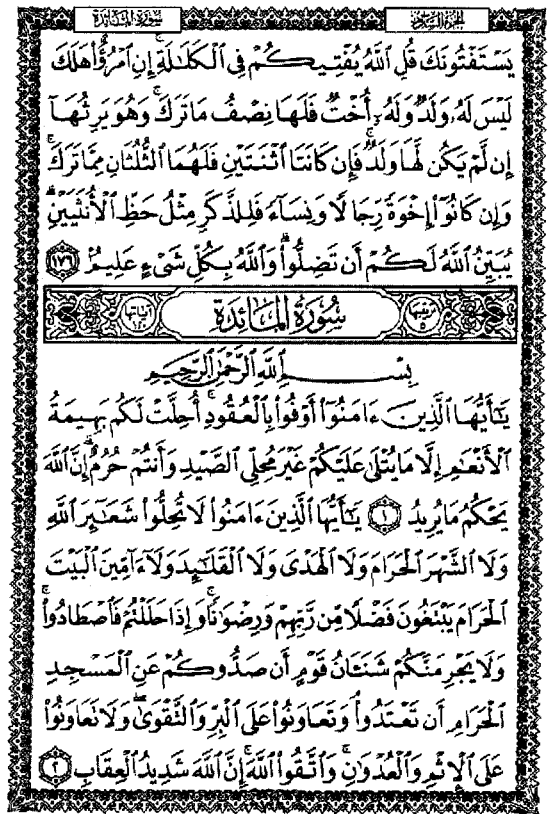 سُورَةُ المَائِدَةِ الجُزْءُ السَّادِسُ
يَسْتَفْتُونَكَ قُلِ ٱللَّهُ يُفْتِيكُمْ فِى ٱلْكَلَٰلَةِ ۚ إِنِ ٱمْرُؤٌا۟ هَلَكَ
لَيْسَ لَهُۥ وَلَدٌ وَلَهُۥٓ أُخْتٌ فَلَهَا نِصْفُ مَا تَرَكَ ۚ وَهُوَ يَرِثُهَآ
إِن لَّمْ يَكُن لَّهَا وَلَدٌ ۚ فَإِن كَانَتَا ٱثْنَتَيْنِ فَلَهُمَا ٱلثُّلُثَانِ مِمَّا تَرَكَ ۚ
وَإِن كَانُوٓا۟ إِخْوَةً رِّجَالًا وَنِسَآءً فَلِلذَّكَرِ مِثْلُ حَظِّ ٱلْأُنثَيَيْنِ ۗ
يُبَيِّنُ ٱللَّهُ لَكُمْ أَن تَضِلُّوا۟ ۗ وَٱللَّهُ بِكُلِّ شَىْءٍ عَلِيمٌۢ ١٧٦
ترتيبها ٥ سُورَةُ المَائِدَةِ آياتها ١٢٠
بِسْمِ ٱللَّهِ ٱلرَّحْمَٰنِ ٱلرَّحِيمِ
يَٰٓأَيُّهَا ٱلَّذِينَ ءَامَنُوٓا۟ أَوْفُوا۟ بِٱلْعُقُودِ ۚ أُحِلَّتْ لَكُم بَهِيمَةُ
ٱلْأَنْعَٰمِ إِلَّا مَا يُتْلَىٰ عَلَيْكُمْ غَيْرَ مُحِلِّى ٱلصَّيْدِ وَأَنتُمْ حُرُمٌ ۗ إِنَّ ٱللَّهَ
يَحْكُمُ مَا يُرِيدُ ١ يَٰٓأَيُّهَا ٱلَّذِينَ ءَامَنُوا۟ لَا تُحِلُّوا۟ شَعَٰٓئِرَ ٱللَّهِ
وَلَا ٱلشَّهْرَ ٱلْحَرَامَ وَلَا ٱلْهَدْىَ وَلَا ٱلْقَلَٰٓئِدَ وَلَآ ءَآمِّينَ ٱلْبَيْتَ
ٱلْحَرَامَ يَبْتَغُونَ فَضْلًا مِّن رَّبِّهِمْ وَرِضْوَٰنًا ۚ وَإِذَا حَلَلْتُمْ فَٱصْطَادُوا۟ ۚ
وَلَا يَجْرِمَنَّكُمْ شَنَـَٔانُ قَوْمٍ أَن صَدُّوكُمْ عَنِ ٱلْمَسْجِدِ
ٱلْحَرَامِ أَن تَعْتَدُوا۟ ۘ وَتَعَاوَنُوا۟ عَلَى ٱلْبِرِّ وَٱلتَّقْوَىٰ ۖ وَلَا تَعَاوَنُوا۟
عَلَى ٱلْإِثْمِ وَٱلْعُدْوَٰنِ ۚ وَٱتَّقُوا۟ ٱللَّهَ ۖ إِنَّ ٱللَّهَ شَدِيدُ ٱلْعِقَابِ ٢